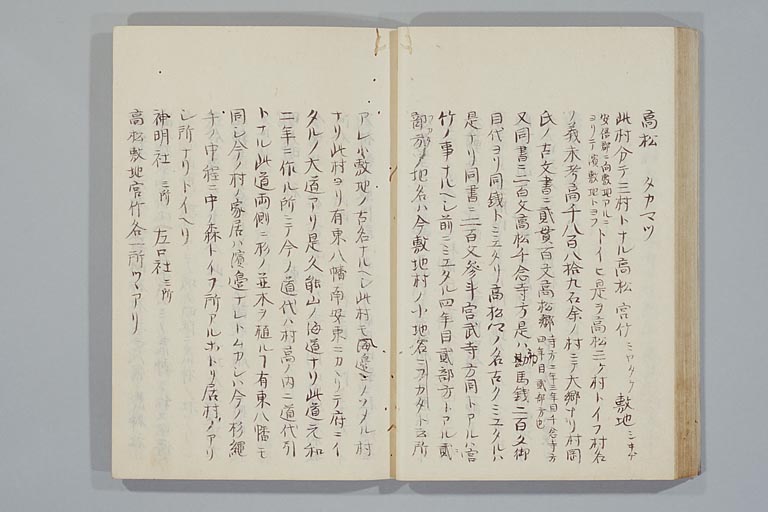 高松 タカマツ
此村分テ三村トナル高松 宮竹ミヤタケ 敷地シキチ
安倍郡ニ向敷地アルニヨリテ濱敷地トヨフ トイヒ是ヲ高松三ケ村トイフ村名
ノ義未考高千八百八拾九石余ノ村ニテ大郷ナリ村岡
氏ノ古文書ニ貳貫百文高松郷 寺方二年三年目千念寺方四年目貳部方也
又同書ニ二百文高松千念寺方是ハ勘馬銭二百文御
目代ヨリ同銭トミエタリ高松ノ名古クミエタルハ
是ナリ同書ニ二百文参斗宮武寺方同トアルハ宮
竹ノ事ナルヘシ前ニミエタル四年目貳部方トアル貳
部ノ地名ハ今敷地村ノ小地名ニフカタト云所
アレハ敷地ノ古名ナルヘシ此村モ海邊ニノソメル村
ナリ此村ヨリ有東八幡南安東ニカヽリテ府ニイ
タルノ大道アリ是久能山ノ海道ナリ此道元和
二年ニ作ル所ニテ今ノ道代ハ村高ノ内ニ道代引
トナル此道両側ニ杉ノ並木ヲ植ルフ有東八幡モ
同シ今ノ村ノ家居ハ濱邊ナレトムカシハ今ノ杉縄
手ノ中程ニ中ノ森トイフ所アルホトリ居村ノアリ
シ所ナリトイヘリ
神明社 三所 左口社 三所
高松敷地宮竹各一所ツヽアリ